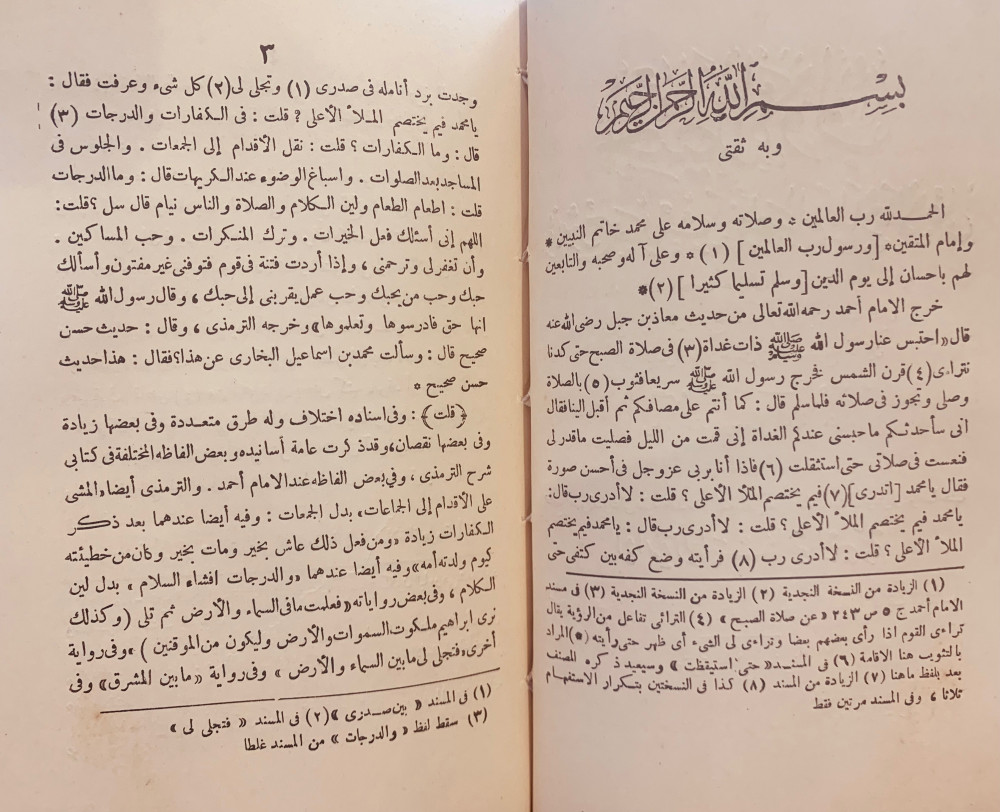 بسم الله الرحمن الرحيم
وبه ثقتى
الحمد لله رب العالمين * وصلاته وسلامه على محمد خاتم النبيين *
وإمام المتقين * [ورسول رب العالمين] (١) * وعلى آله وصحبه والتابعين
لهم باحسان إلى يوم الدين [وسلم تسليما كثيرا] (٢) *
خرج الامام أحمد رحمه الله تعالى من حديث معاذ بن جبل رضى الله عنه
قال «احتبس عنا رسول الله ﷺ ذات غداة (٣) فى صلاة الصبح حتى كدنا
نتراءى (٤) قرن الشمس فخرج رسول الله ﷺ سريعا فثوب (٥) بالصلاة
وصلى وتجوز فى صلاته فلما سلم قال : كما أنتم على مصافكم ثم أقبل الينا فقال
انى سأحدثكم ما حبسنى عنكم الغداة إنى قمت من الليل فصليت ما قدر لى
فنعست فى صلاتى حتى استثقلت (٦) فاذا أنا بربى عز وجل فى أحسن صورة
فقال يا محمد [أتدرى] (٧) فيم يختصم الملأ الأعلى ؟ قلت : لا أدرى رب قال :
يا محمد فيم يختصم الملأ الأعلى ؟ قلت : لا أدرى رب قال : يا محمد فيم يختصم
الملأ الأعلى ؟ قلت : لا أدرى رب (٨) فرأيته وضع كفه بين كتفى حتى
(١) الزيادة من النسخة النجدية (٢) الزيادة من النسخة النجدية (٣) فى مسند
الامام أحمد ج ٥ ص ٢٤٣ «عن صلاة الصبح» (٤) الترائى تفاعل من الرؤية يقال
تراءى القوم اذا رأى بعضهم بعضا وتراءى لى الشىء أى ظهر حتى رأيته (٥) المراد
بالتثويب هنا الاقامة (٦) فى المسند «حتى استيقظت» وسيعيد ذكره المصنف
بعد بلفظ ما هنا (٧) الزيادة من المسند (٨) كذا فى النسختين بتكرار الاستفهام
ثلاثا ، وفى المسند مرتين فقط
٣
وجدت برد أنامله فى صدرى (١) وتجلى لى (٢) كل شىء وعرفت فقال :
يا محمد فيم يختصم الملأ الأعلى ? قلت : فى الكفارات والدرجات (٣)
قال : وما الكفارات ؟ قلت : نقل الأقدام إلى الجمعات . والجلوس فى
المساجد بعد الصلوات . واسباغ الوضوء عند الكريهات قال : وما الدرجات
قلت : اطعام الطعام ولين الكلام والصلاة والناس نيام قال سل ؟ قلت :
اللهم إنى أسئلك فعل الخيرات . وترك المنكرات . وحب المساكين .
وأن تغفر لى وترحمنى ، وإذا أردت فتنة فى قوم فتوفنى غير مفتون وأسألك
حبك وحب من يحبك وحب عمل يقربنى إلى حبك ، وقال رسول الله ﷺ
انها حق فادرسوها وتعلموها» وخرجه الترمذى ، وقال : حديث حسن
صحيح قال : وسألت محمد بن اسماعيل البخارى عن هذا؟ فقال : هذا حديث
حسن صحيح *
﴿قلت﴾ : وفى اسناده اختلاف وله طرق متعددة وفى بعضها زيادة
وفى بعضها نقصان ، وقد ذكرت عامة أسانيده وبعض الفاظه المختلفة فى كتابى
شرح الترمذى ، وفى بعض الفاظه عند الامام أحمد . والترمذى أيضا «المشى
على الأقدام إلى الجماعات» بدل الجمعات : وفيه أيضا عندهما بعد ذكر
الكفارات زيادة «ومن فعل ذلك عاش بخير ومات بخير وكان من خطيئته
كيوم ولدته أمه» وفيه أيضا عندهما «والدرجات افشاء السلام» بدل لين
الكلام ، وفى بعض رواياته «فعلمت ما فى السماء والأرض ثم تلى (وكذلك
نرى ابراهيم ملكوت السموات والأرض وليكون من الموقنين) » وفى رواية
أخرى «فتجلى لى ما بين السماء والأرض» وفى رواية «ما بين المشرق» وفى
(١) فى المسند «بين صدرى» (٢) فى المسند «فتجلى لى»
(٣) سقط لفظ «والدرجات» من المسند غلطا